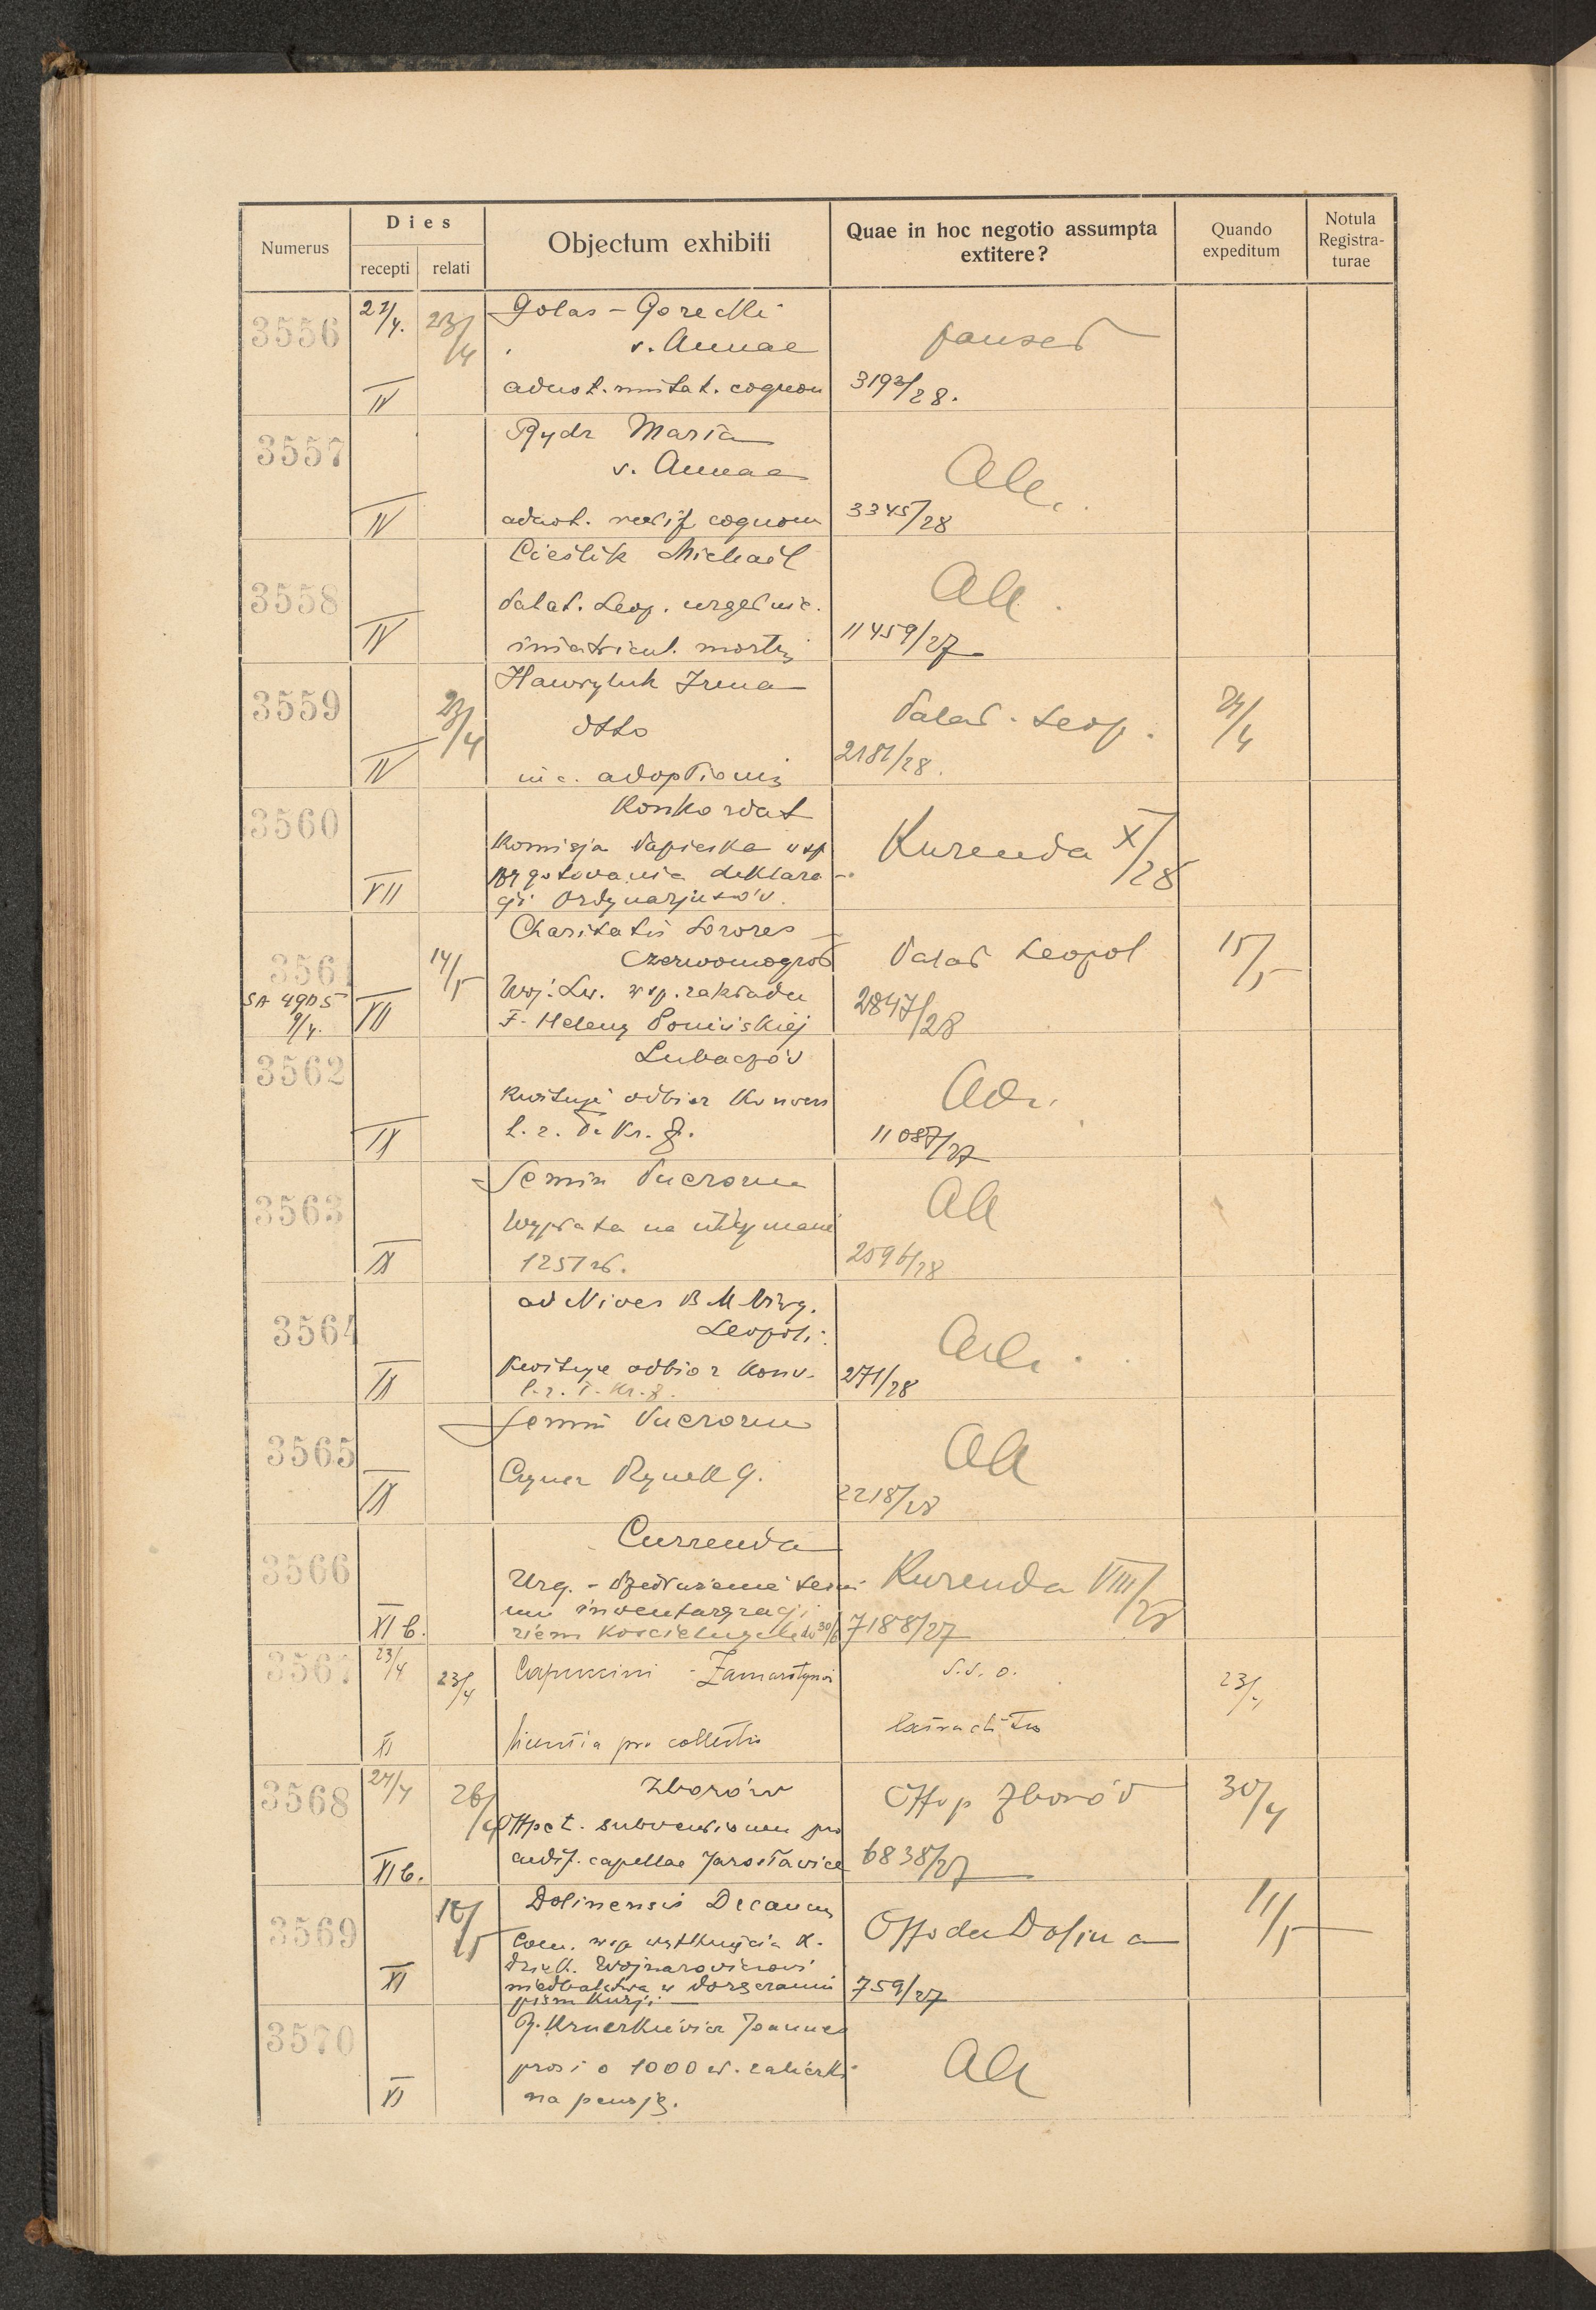 Numerus
Dies
recepti
relati
Objectum exhibiti
Quae in hoc negotio assumpta
extitere?
Quando
expeditum
Notula
Registra-
turae
3556
IV
23/4
Golas - Gorecki
s. Annae
adnot. mutat. cognom
3193/28.
3557
IV
Rydz Maria
s. Annae
adnot. cognom
3345/28
3558
IV
Cieślik Michaël
Palat. Leop. urget
immatricul. mortis
11459/27
3559
23/4
IV
Hawryluk Irena
Otto
adoptionis
Palat. Leop.
2181/28.
24/4
3560
VII
Konkordat
Komisja Papieska wsp
deklara-
cji Ordynarjuszów.
Kurenda X/28
3561
SA 49
9/4.
14/5
VII
Charitatis Sorores
Czerwonogród
Woj. Lw. wsp. zakładu
F. Heleny Ponińskiej
Palat Leopol
2847/28
15/5
3562
IX
Lubaczów
Kwituje odbiór Konwers
l. z. T. Kr. Z.
11087/27
3563
IX
Semin Puerorum
Wypłata na utrzymanie
125 zł.
Aa
2596/28
3564
IX
ad Nives B M Virg.
Leopoli
Kwituje odbiór Konw.
l. z. T. Kr. Z.
271/28
3565
IX
Semin Puerorum
Czynsz Rynek 9.
Aa
2218/28
3566
XI b.
Currenda
Urg. - Przedłużenie
inwentaryzacji
ziem Kościelnych do 30/6
Kurenda VIII/28
7188/27
3567
23/4
23/4
XI
Capuccini - Zamarstynów
licentia pro collectis
S. s. o.
23/4
3568
24/4
26/4
XI b.
Zborów
Offpet. subventionem pro
aedif. capellae Jarosławice
Offo p Zborów
6838/27
30/4
3569
10/5
XI
Dolinensis Decanus
Com. wsp wytknięcia X.
Dziek. Wojnarowiczowi
niedbalstwa w doręczaniu
pism Kurji
Offo du Dolina
759/27
11/5
3570
XI
Joannes
prosi o 1000 zł. zaliczki
na pensję.
Aa